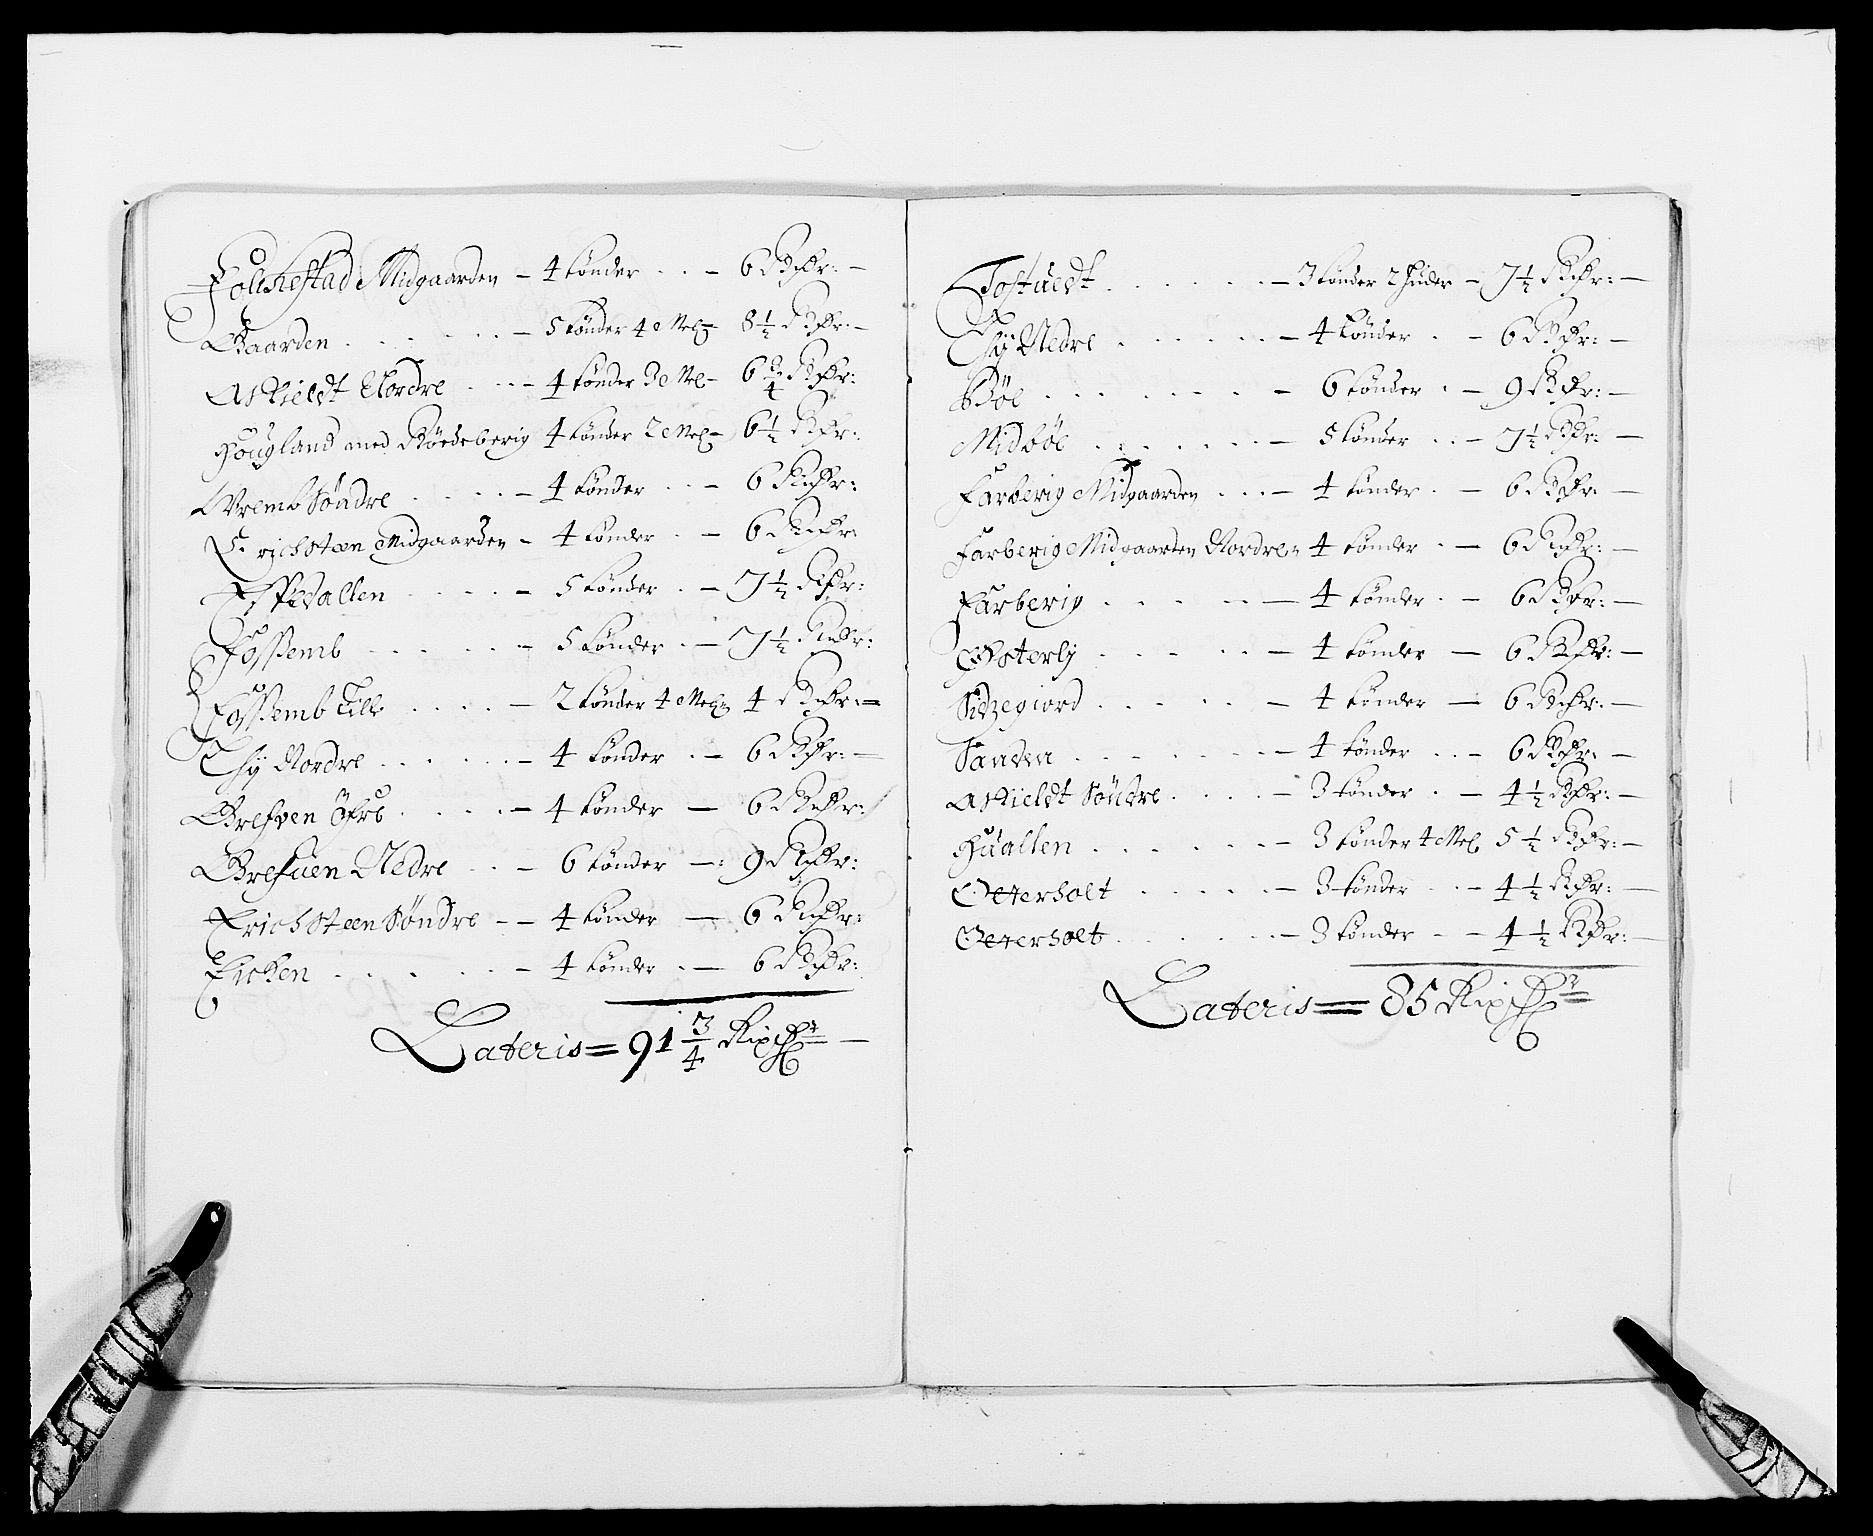 Follnestad Midgaarden – 4 tønder . . – 6 Rdr: –
Gaarden . . . . . – 5 tønder 4 Mel: – 8 1/2 Rdr: –
Askieldt Nordre . . . – 4 tønder 3 Mel – 6 3/4 Rdr:
Hougland med Röedeberig 4 tønder 2 Mel – 6 1/2 Rdr:
Wremb Søndre . . . . – 4 tønder . . – 6 Rdr:
Erichsteen Midgaarden – 4 tønder . – 6 Rdr:
Espevallen . . . . – 5 tønder . – 7 1/2 Rdr:
Fossemb . . . . . – 5 tønder . – 7 1/2 Rdr:
Fossemb Lille . . . . – 2 tønder 4 Mel: 4 Rdr: =
Thy Nordre . . . . . – 4 tønder . – 6 Rdr: –
Grefven Øfre . . . . – 4 tønder – 6 Rdr:
Grefuen Nedre . . – 6 tønder – : 9 Rdr:
Erichsteen Søndre – – 4 tønder – 6 Rdr:
Eicken . . . . . – 4 tønder . – 6 Rdr:
Lateris = 91 3/4 Rixdr –
Tostuedt . . . . . . – 3 tønder 2 huder – 7 1/2 Rdr: –
Thy Nedre . . . . . – 4 tønder . – 6 Rdr: –
Bøe . . . . . . – 6 tønder . – 9 Rdr: –
Midbøe . . . . . . – 5 tønder . . – 7 1/2 Rdr: –
Farberig Midgaarden . . . – 4 tønder . – 6 Rdr: –
Farberig Midgaarden Nordre – 4 tønder . – 6 Rdr: –
Farberig . . . . . . – 4 tønder . – 6 Rdr: –
Østerby . . . . . – 4 tønder – 6 Rdr: –
Sidzegiord . . . . . – 4 tønder – 6 Rdr: –
Sanden . . . . . . – 4 tønder . . – 6 Rdr: –
Askieldt Søndre . . . . – 3 tønder . – 4 1/2 Rdr: –
Huallen . . . . . . – 3 tønder 4 Mel 5 1/2 Rdr: –
Oeterholt . . . . . – 3 tønder . . – 4 1/2 Rdr: –
Geterholt . . . . . – 3 tønder – – 4 1/2 Rdr: –
Lateris = 85 Rixdr